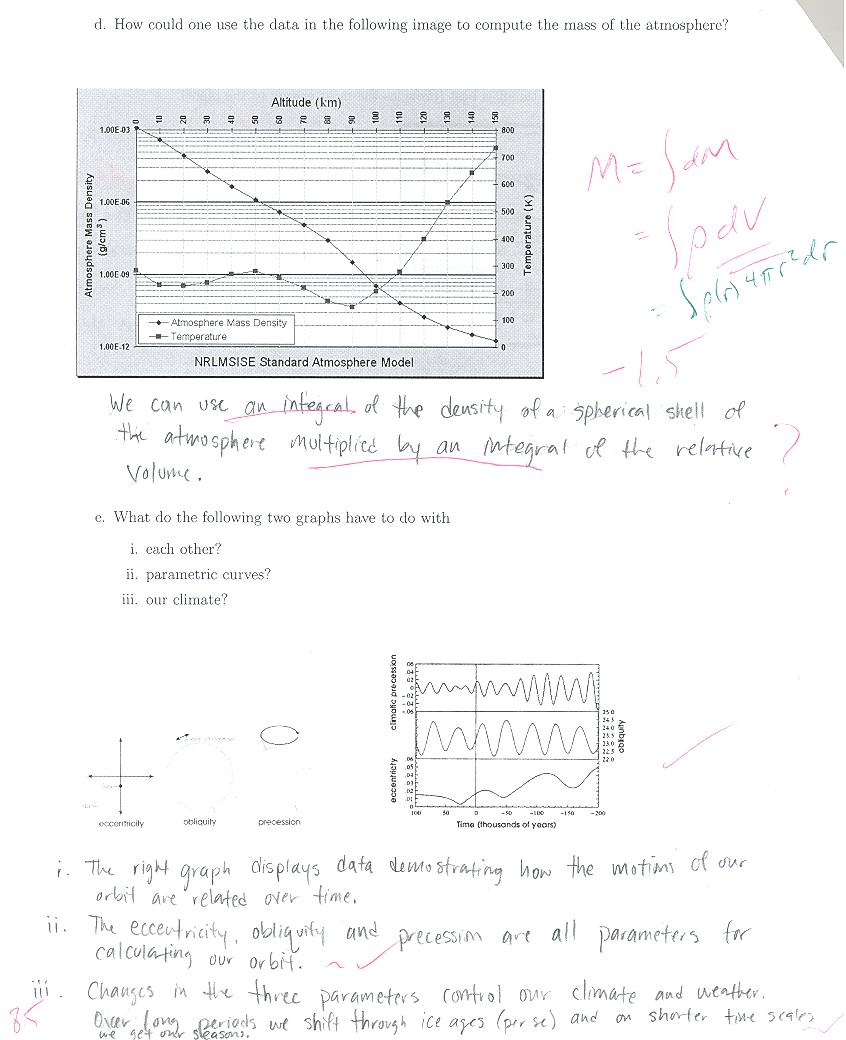 d. How could one use the data in the following image to compute the mass of the atmosphere?
Altitude (km)
0 10 20 30 40 50 60 70 80 90 100 110 120 130 140 150
1.00E-03
1.00E-06
1.00E-09
1.00E-12
Atmosphere Mass Density
(g/cm³)
800
700
600
500
400
300
200
100
0
Temperature (K)
Atmosphere Mass Density
Temperature
NRLMSISE Standard Atmosphere Model
M = ∫ dM
= ∫ ρ dV
= ∫ ρ(r) 4πr² dr
-1.5
We can use an integral of the density of a spherical shell of
the atmosphere multiplied by an integral of the relative
volume.
?
e. What do the following two graphs have to do with
i. each other?
ii. parametric curves?
iii. our climate?
eccentricity
obliquity
precession
climatic precession
.06
.04
.02
0
-.02
-.04
-.06
25.0
24.5
24.0
23.5
23.0
22.5
22.0
obliquity
eccentricity
.06
.05
.04
.03
.02
.01
0
100 50 0 -50 -100 -150 -200
Time (thousands of years)
i. The right graph displays data demostrating how the motions of our
orbit are related over time.
ii. The eccentricity, obliquity and precession are all parameters for
calculating our orbit.
iii. Changes in the three parameters control our climate and weather.
Over long periods we shift through ice ages (per se) and on shorter time scales
we get our seasons.
85